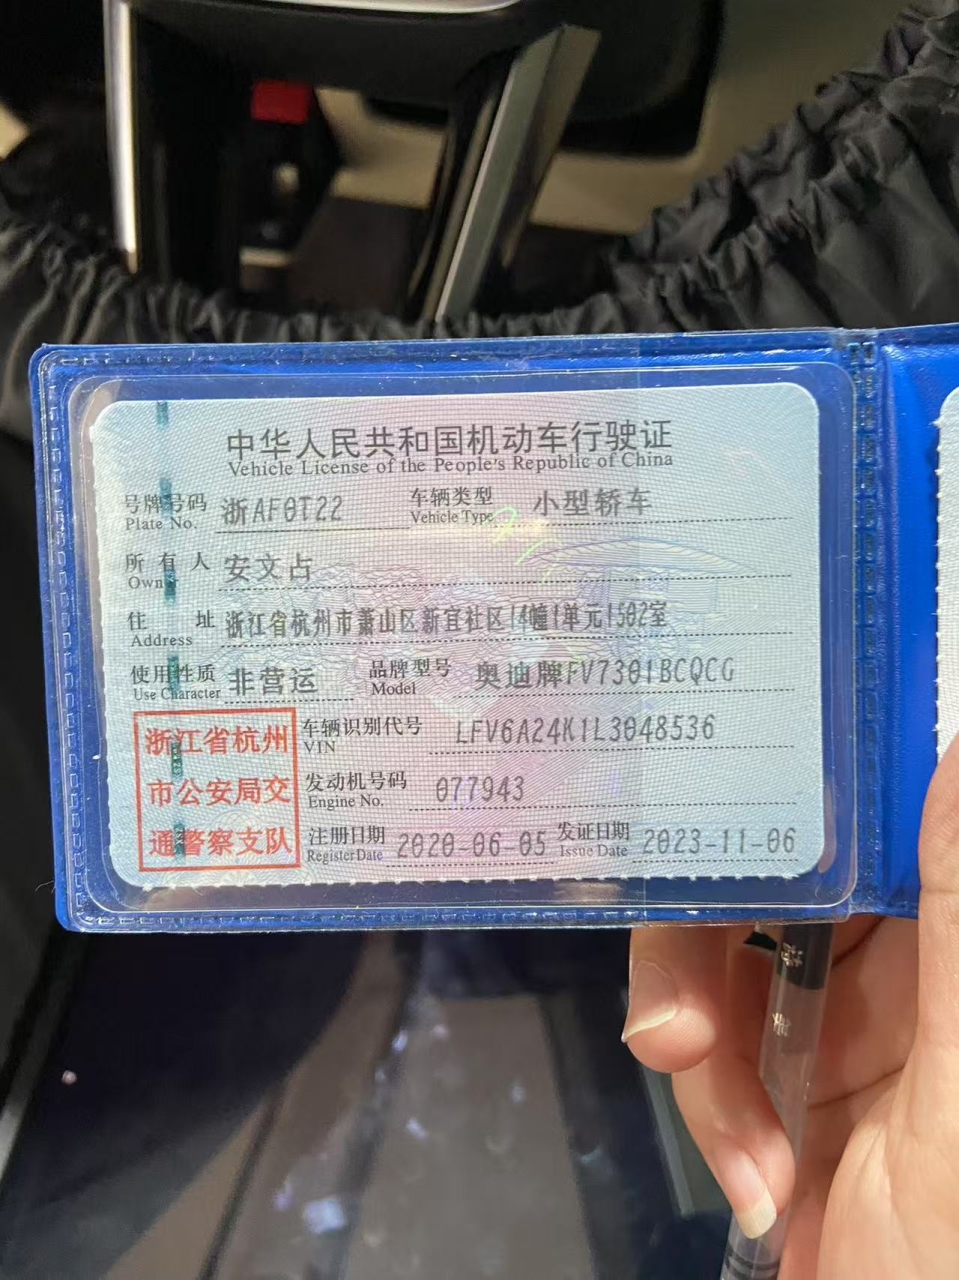 中华人民共和国机动车行驶证
Vehicle License of the People's Republic of China
号牌号码 浙AF0T22 车辆类型 小型轿车
Plate No. Vehicle Type
所有人 安文占
Owner
住址 浙江省杭州市萧山区新宜社区14幢1单元1502室
Address
使用性质 非营运 品牌型号 奥迪牌FV7301BCQCG
Use Character Model
浙江省杭州 车辆识别代号 LFV6A24K1L3048536
VIN
市公安局交 发动机号码 077943
Engine No.
通警察支队 注册日期 2020-06-05 发证日期 2023-11-06
Register Date Issue Date